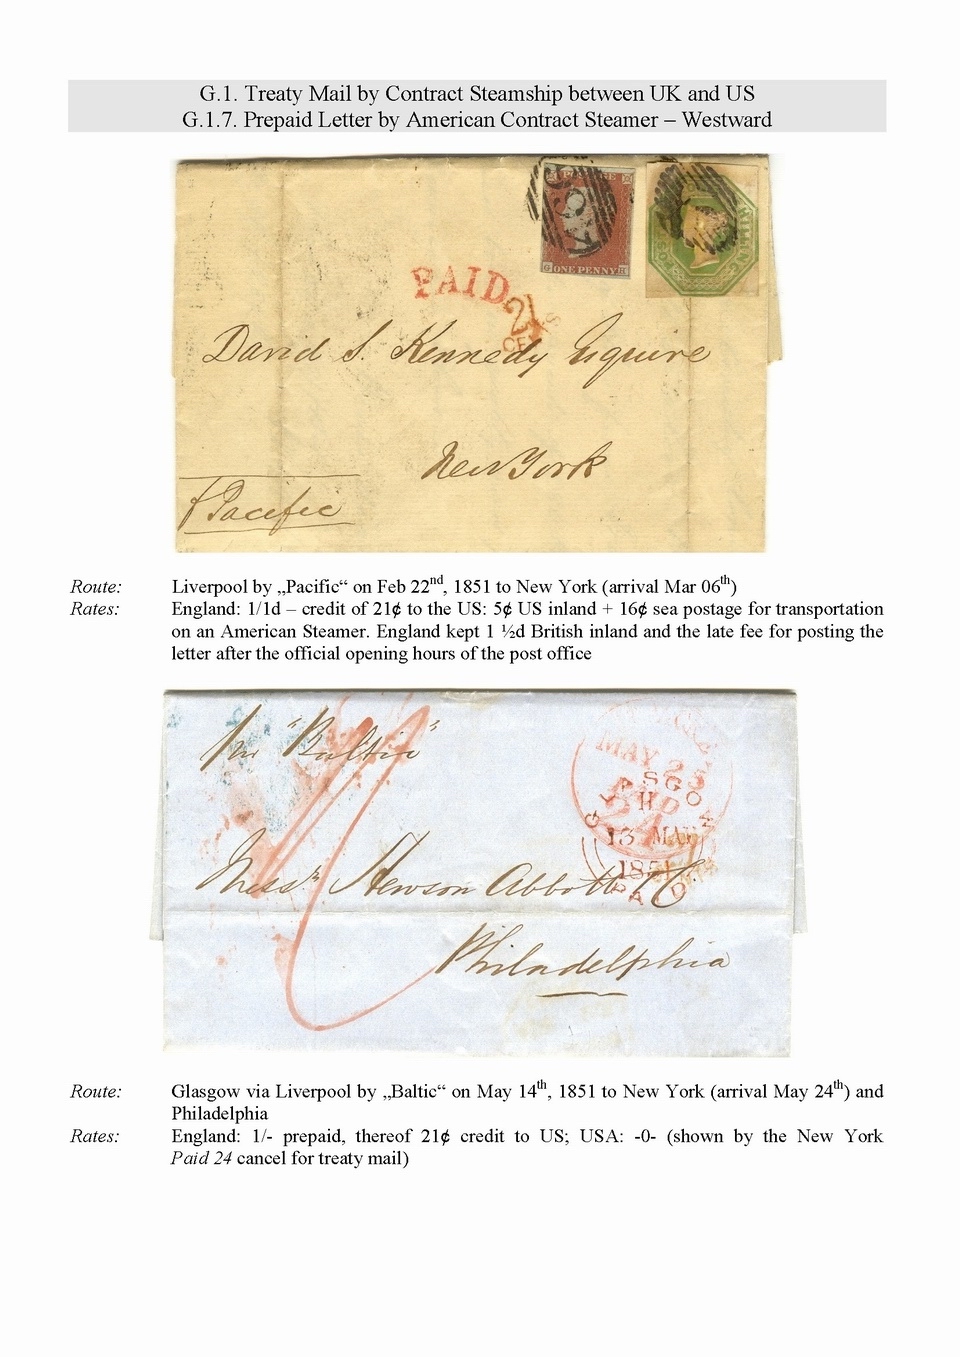 G.1. Treaty Mail by Contract Steamship between UK and US
G.1.7. Prepaid Letter by American Contract Steamer – Westward
ONE PENNY
PAID
21
CENTS
David S. Kennedy Esquire
New York
Pacific
Route: Liverpool by „Pacific“ on Feb 22nd, 1851 to New York (arrival Mar 06th)
Rates: England: 1/1d – credit of 21¢ to the US: 5¢ US inland + 16¢ sea postage for transportation
on an American Steamer. England kept 1 ½d British inland and the late fee for posting the
letter after the official opening hours of the post office
Per "Baltic"
MAY 25
PAID
24
GLASGOW
13 MAY
1851
PAID
Messrs Hewson Abbott & Co.
Philadelphia
Route: Glasgow via Liverpool by „Baltic“ on May 14th, 1851 to New York (arrival May 24th) and
Philadelphia
Rates: England: 1/- prepaid, thereof 21¢ credit to US; USA: -0- (shown by the New York
Paid 24 cancel for treaty mail)